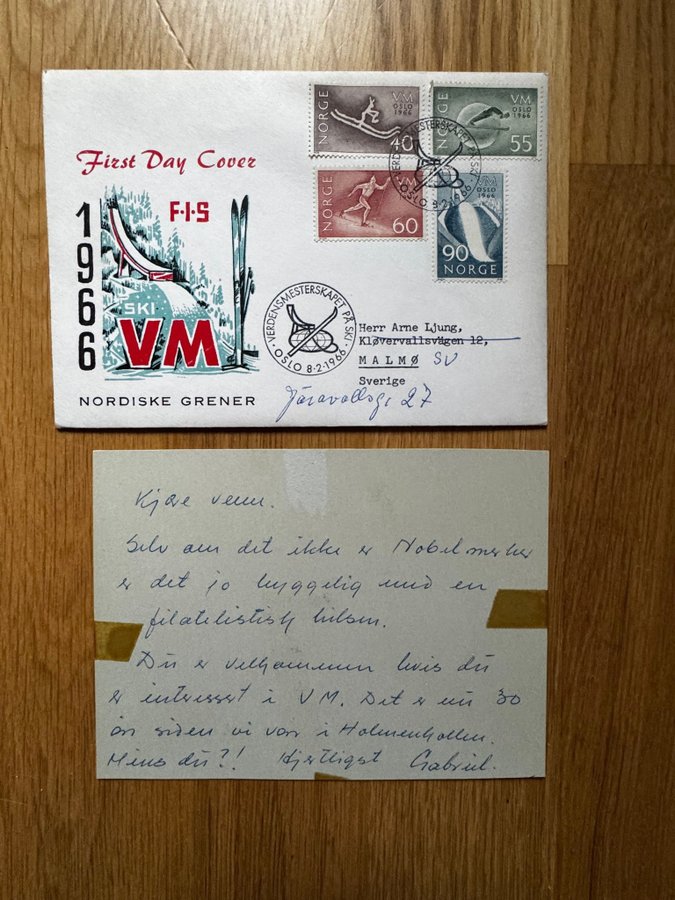 First Day Cover
F·I·S
1966
SKI
VM
NORDISKE GRENER
NORGE
40
VM
OSLO
1966
NORGE
55
VM
OSLO
1966
NORGE
60
VM
90
NORGE
VM
OSLO
1966
VERDENSMESTERSKAPET PÅ SKI
OSLO 8·2·1966
VERDENSMESTERSKAPET PÅ SKI
OSLO 8·2·1966
Herr Arne Ljung,
Kløvervallsvägen 12,
MALMØ SV
Sverige
27
Kjære venn.
Selv om det ikke er Nobelmerker
er det jo hyggelig med en
filatelistisk hilsen.
Du er velkommen hvis du
er interessert i VM. Det er nu 30
år siden vi var i Holmenkollen.
Mins du?! Hjertligst Gabriel.